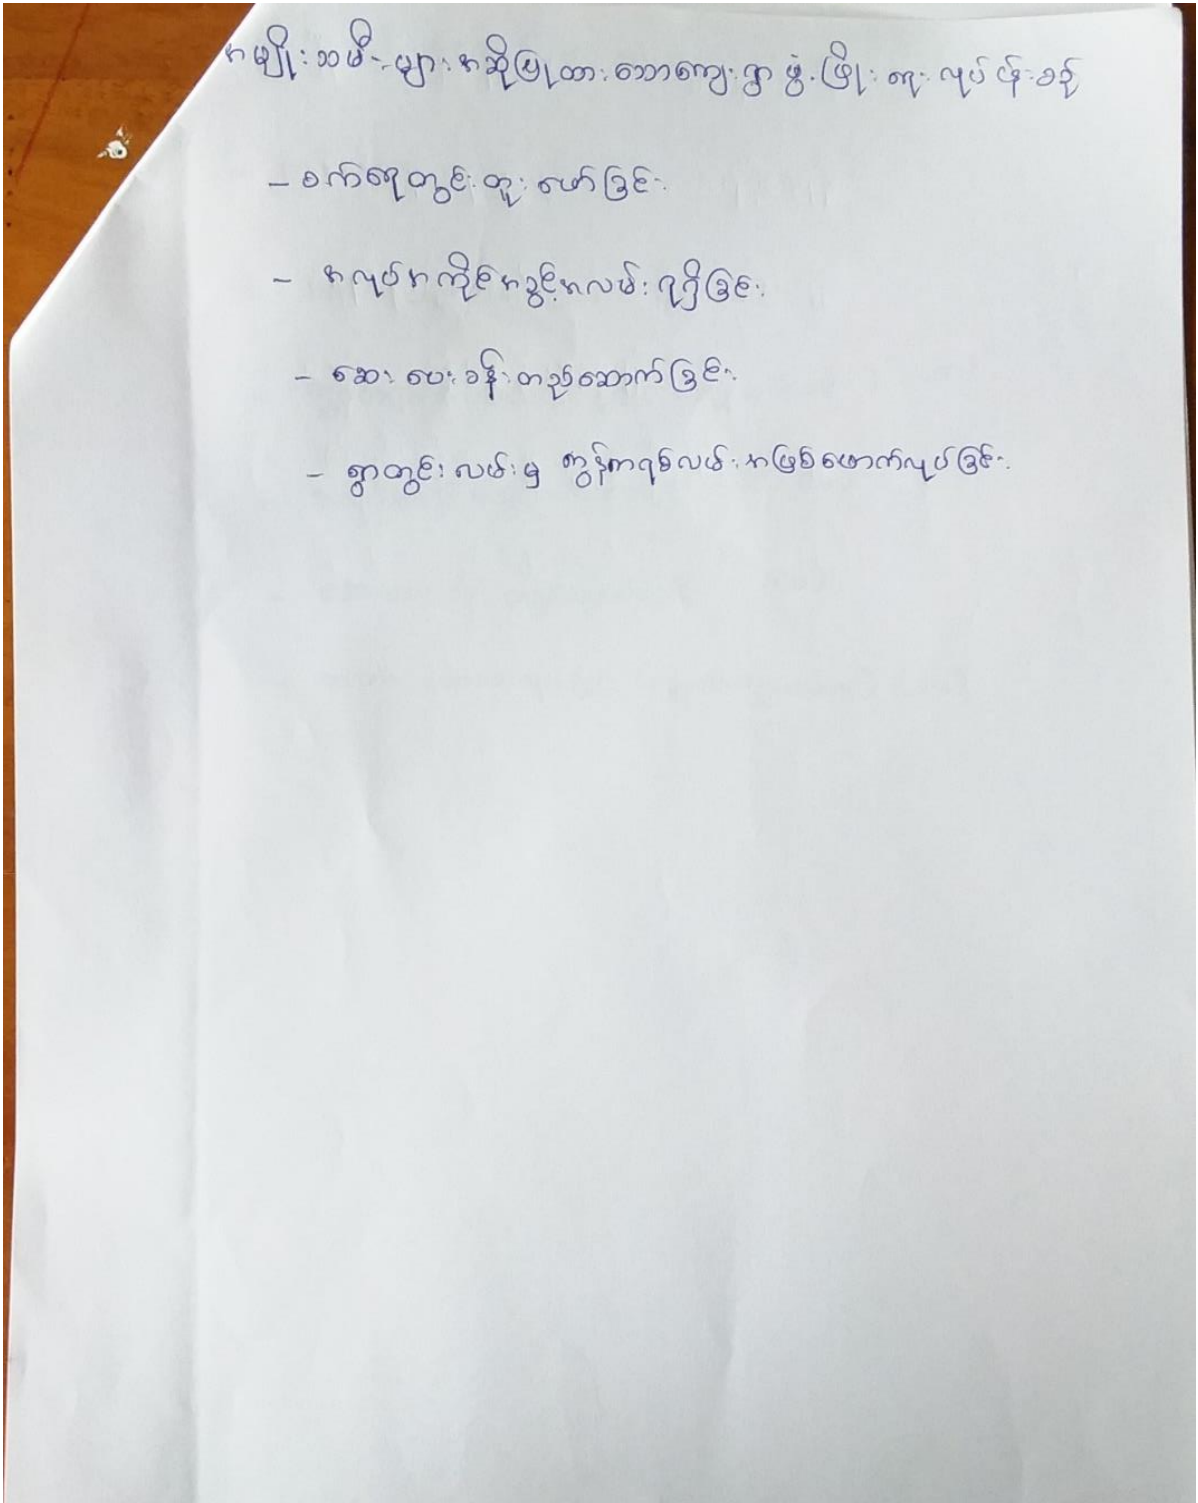 အမျိုးသမီးများအဆိုပြုထားသောကျေးရွာဖွံ့ဖြိုးရေးလုပ်ငန်းစဉ်
- စက်ရေတွင်းတူးဖော်ခြင်း
- အလုပ်အကိုင်အခွင့်အလမ်းရရှိခြင်း
- ဆေးပေးခန်းတည်ဆောက်ခြင်း
- ရွာတွင်းလမ်းမှ ကွန်ကရစ်လမ်းအဖြစ်ဖောက်လုပ်ခြင်း